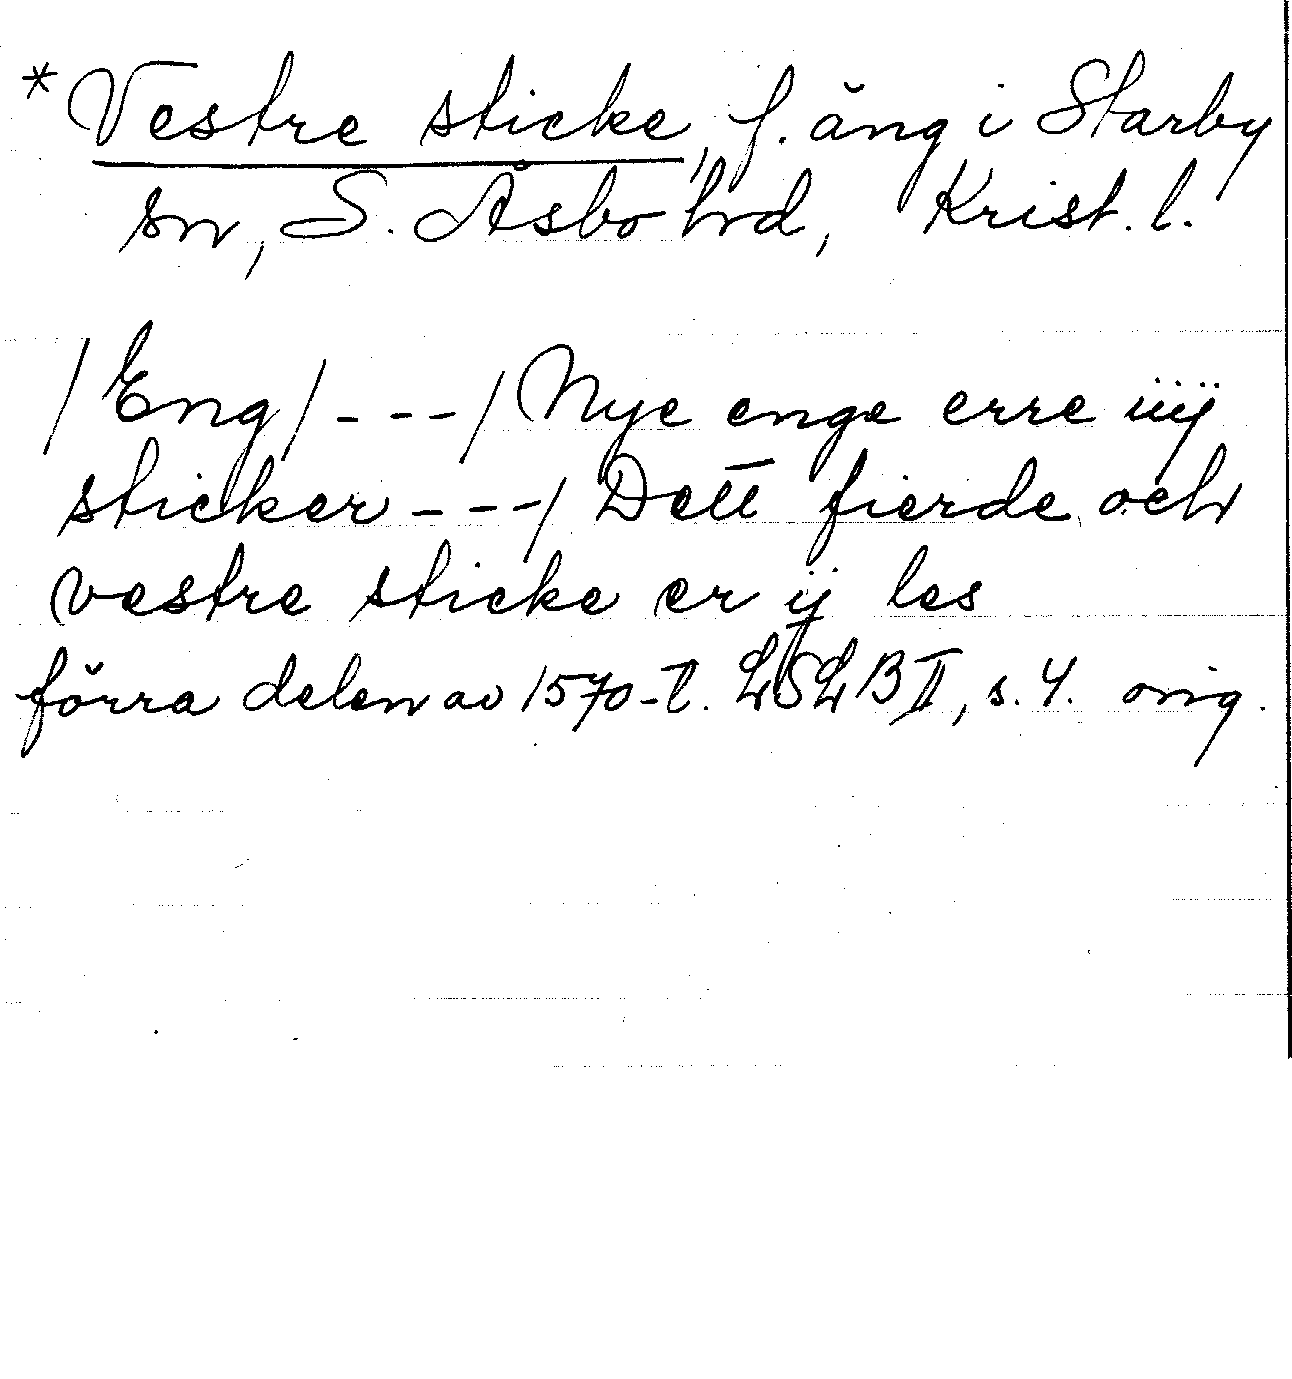 *Vestre sticke, f. äng i Starby
sn, S. Åsbo hrd, Krist. l.
/Eng/---/Nye enge erre iiij
sticker---/Dett fierde och
vestre sticke er ij les
förra delen av 1570-t. LSLB II, s. 4. orig.